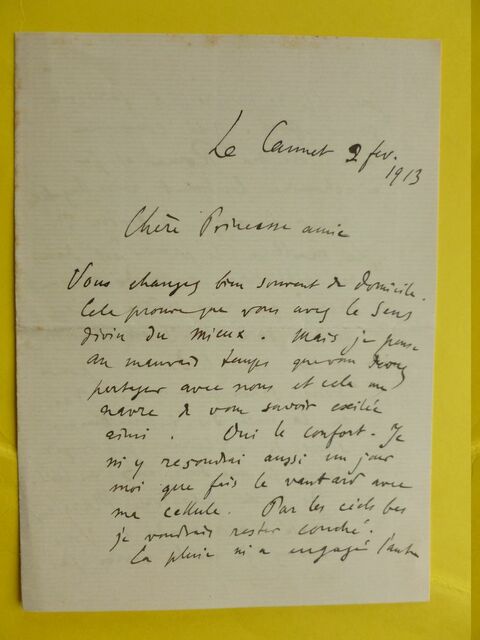 Le Cannet 2 fev.
1913
Chère Princesse amie
Vous changez bien souvent de domicile.
Cela prouve que vous avez le sens
divin du mieux. Mais je pense
au mauvais temps que vous devez
partager avec nous et cela me
navre de vous savoir exilée
ainsi. Oui le confort. Je
m'y resoudrai aussi un jour
moi que fais le vantard avec
ma cellule. Par les ciels bas
je voudrais rester couché.
La pluie m'a engagé l'autre